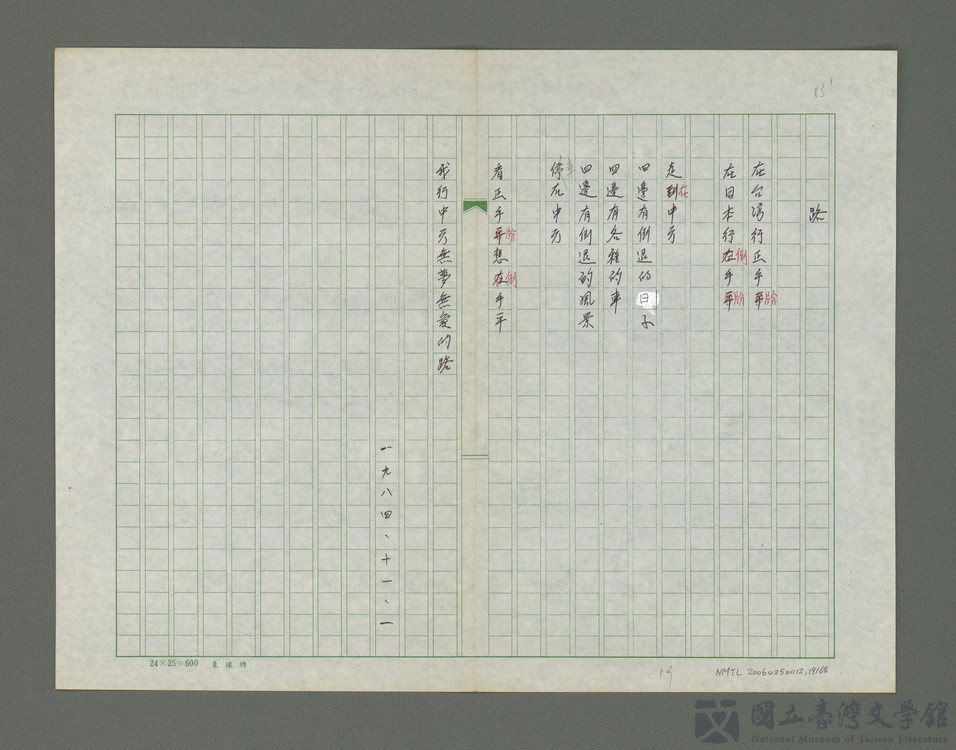 13
路
在台湾行正手平
在日本行左手平
倒
走到中央
在
四邊有倒退的日子
四邊有各種的車
四邊有倒退的風景
停在中央
車
看正手平想左手平
倒
我行中央無夢無愛的路
一九八四、十一、一
24×25=600
19
NMTL 20060250012,19168
國立臺灣文學館
National Museum of Taiwan Literature